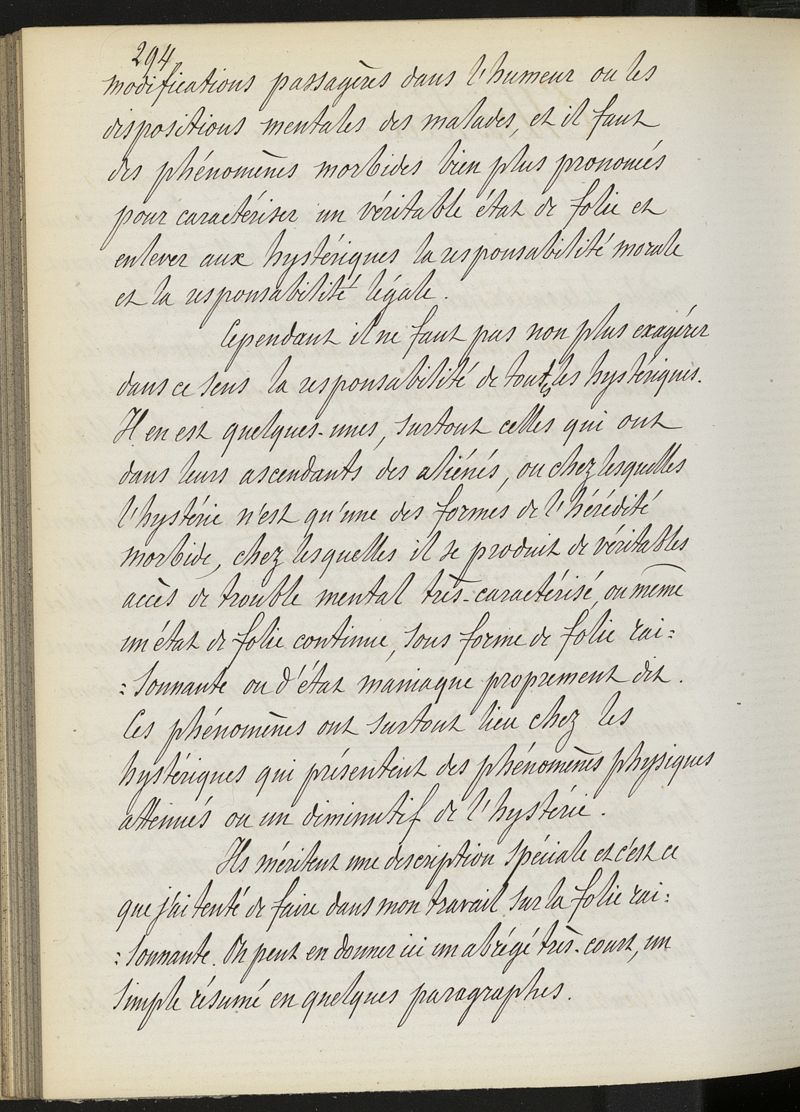 294
modifications passagères dans l'humeur ou les
dispositions mentales des malades, et il faut
des phénomènes morbides bien plus prononcés
pour caractériser un véritable état de folie et
enlever aux hystériques la responsabilité morale
et la responsabilité légale.
Cependant il ne faut pas non plus exagérer
dans ce sens la responsabilité de toutes les hystériques.
Il en est quelques-unes, surtout celles qui ont
dans leurs ascendants des aliénés, ou chez lesquelles
l'hystérie n'est qu'une des formes de l'hérédité
morbide, chez lesquelles il se produit de véritables
accès de trouble mental très-caractérisé, ou même
un état de folie continue, sous forme de folie rai=
=sonnante ou d'état maniaque proprement dit.
Ces phénomènes ont surtout lieu chez les
hystériques qui présentent des phénomènes physiques
atténués ou un diminutif de l'hystérie.
Ils méritent une description spéciale et c'est ce
que j'ai tenté de faire dans mon travail sur la folie rai=
=sonnante. On peut en donner ici un abrégé très-court, un
simple résumé en quelques paragraphes.